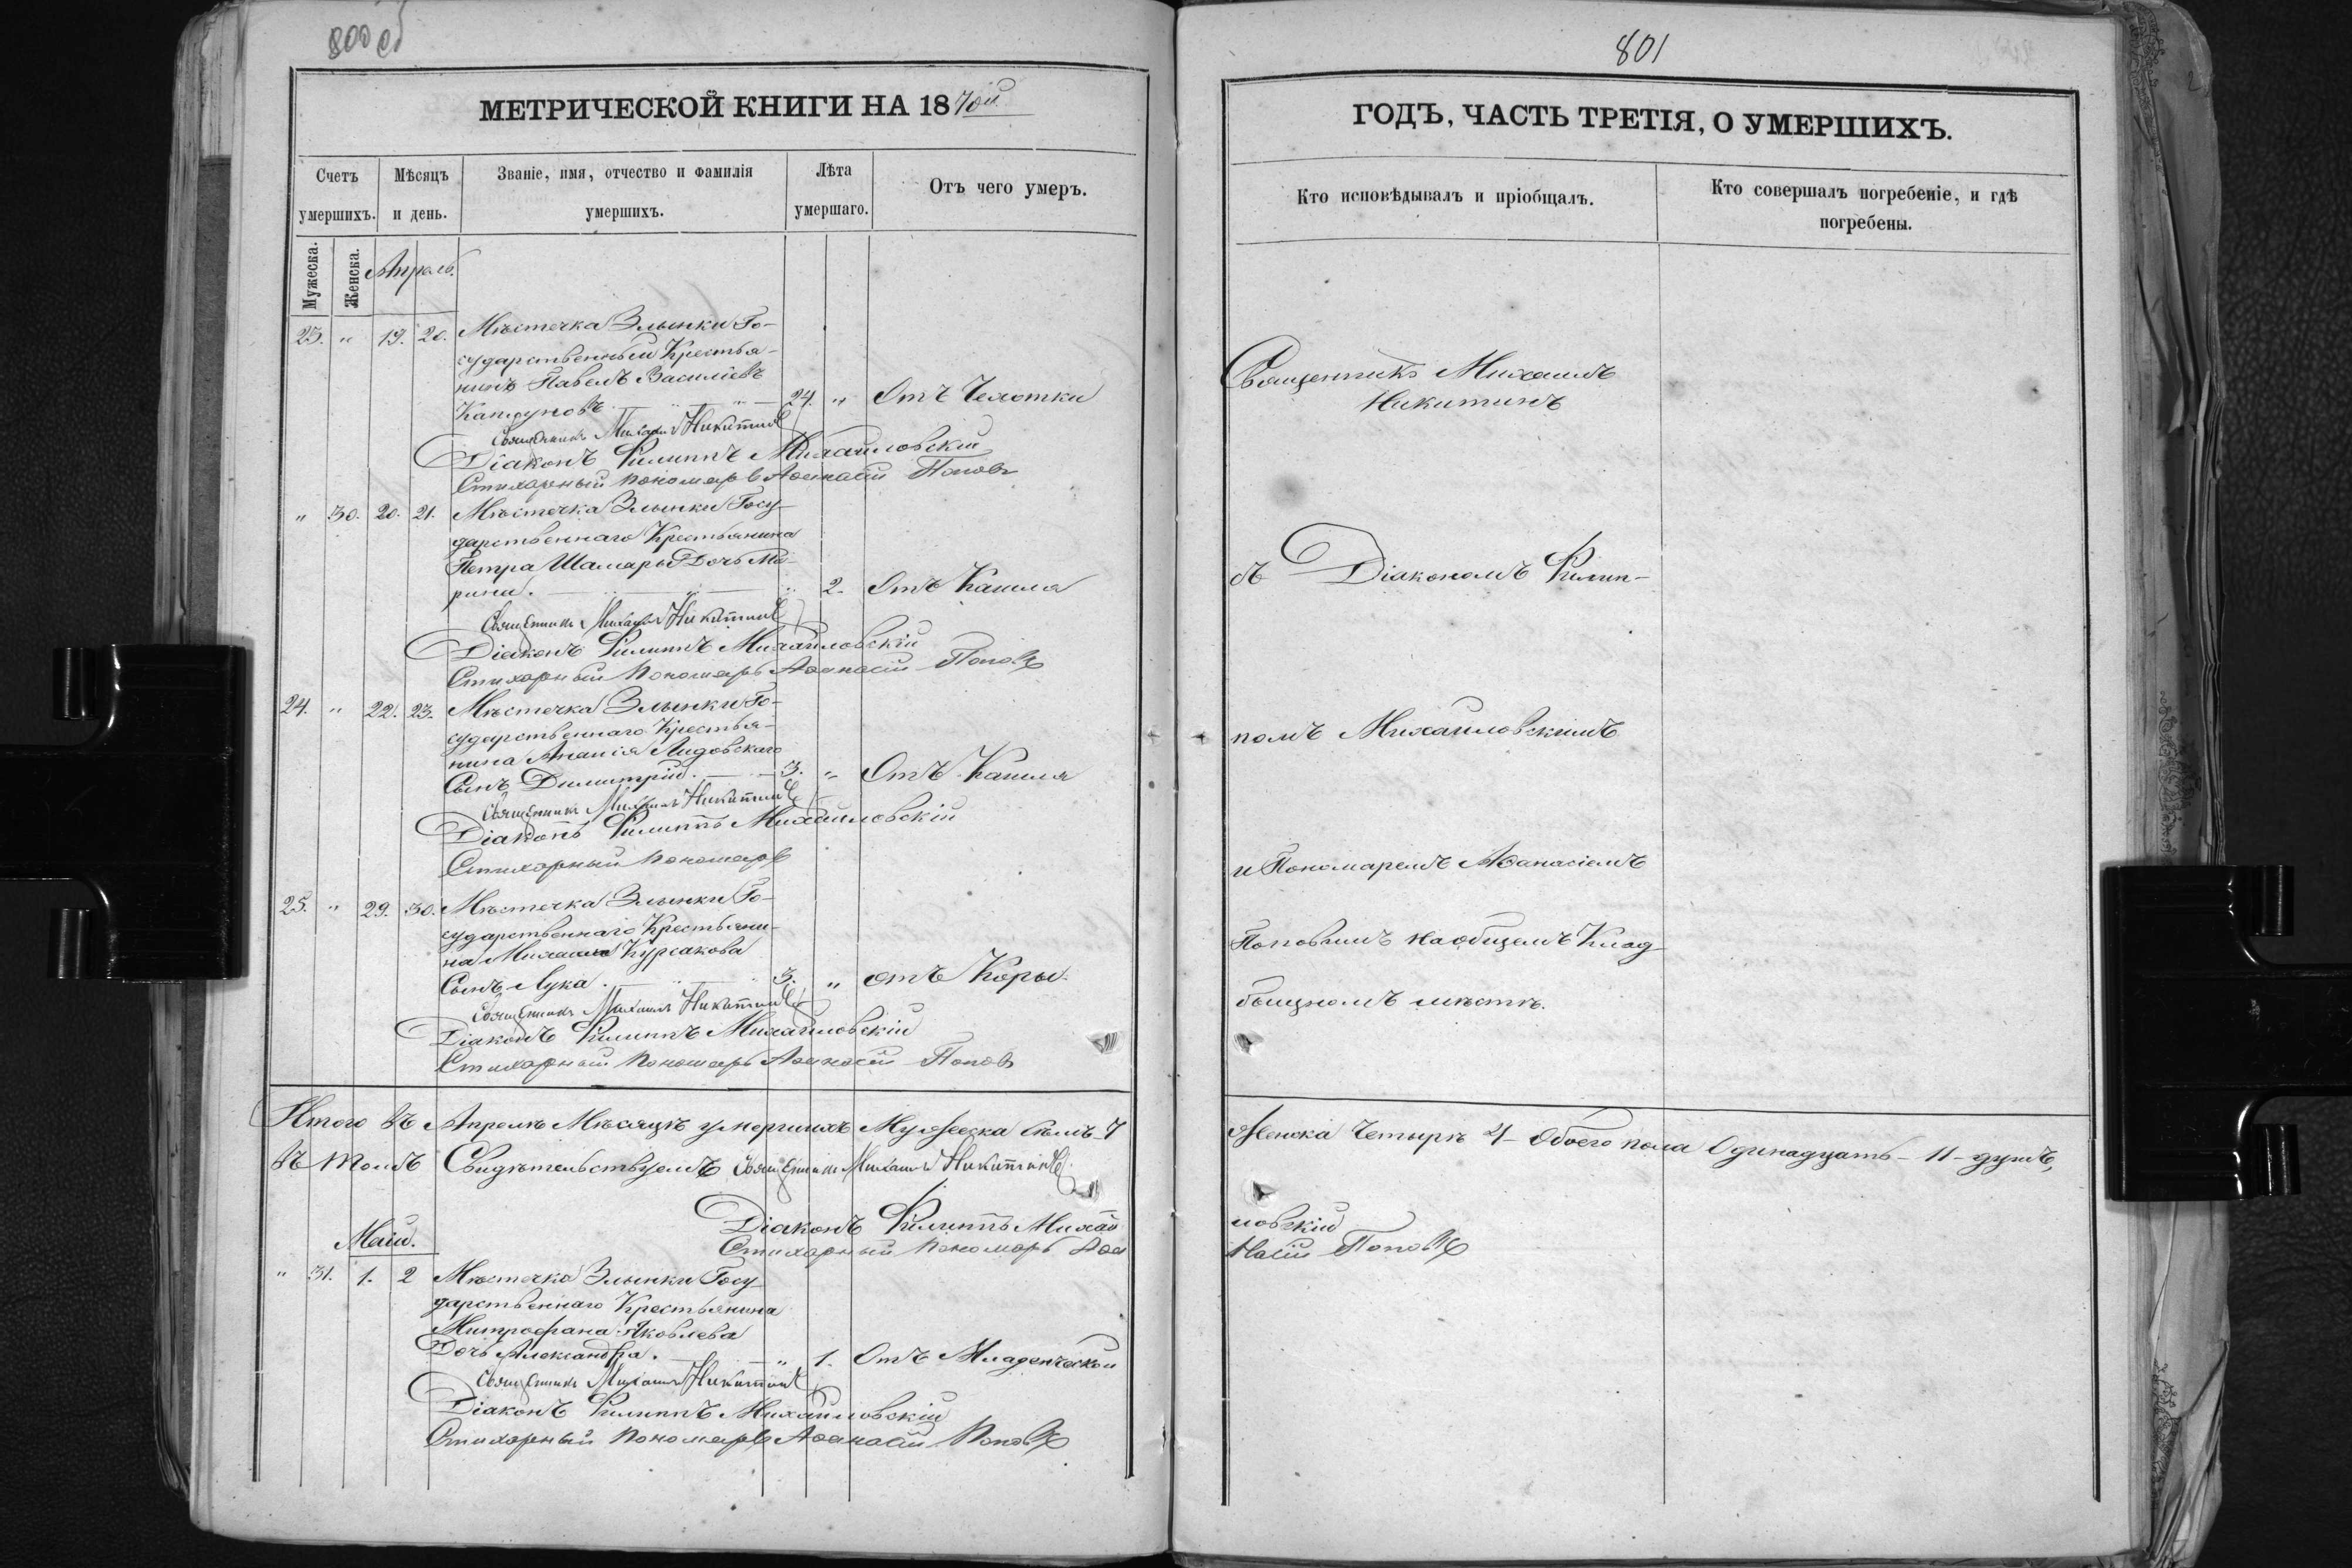 800 об
МЕТРИЧЕСКОЙ КНИГИ НА 1870й
Счетъ умершихъ.
Мѣсяцъ и день.
Званіе, имя, отчество и фамилія умершихъ.
Лѣта умершаго.
Отъ чего умеръ.
Мужеска.
Женска.
Апрель.
23. " 19. 20. Мѣстечка Злынки Го-
сударственный Крестья-
нинъ Павелъ Василіевъ
24. " Отъ Чехотки
Священникъ Михаилъ Никитинъ
Діаконъ Филиппъ Михайловскій
Стихарный пономарь Аѳанасій Поповъ
" 30. 20. 21. Мѣстечка Злынки Госу-
дарственнаго Крестьянина
Петра Шамары Дочь Ма-
рина. " 2. Отъ Кашля
Священникъ Михаилъ Никитинъ
Діаконъ Филиппъ Михайловскій
Стихарный Пономарь Аѳанасій Поповъ
24. " 22. 23. Мѣстечка Злынки Го-
сударственнаго Крестья-
нина Ананія Лидовскаго
Сынъ Димитрій. 3. " Отъ Кашля
Священникъ Михаилъ Никитинъ
Діаконъ Филиппъ Михайловскій
Стихарный Пономарь
25. " 29. 30. Мѣстечка Злынки Го-
сударственнаго Крестьяни-
на Михаила Курсакова
Сынъ Лука. 3. " отъ Коры.
Священникъ Михаилъ Никитинъ
Діаконъ Филиппъ Михайловскій
Стихарный Пономарь Аѳанасій Поповъ
Итого въ Апрелѣ Мѣсяцѣ умершихъ Мужеска Семь 7
Въ томъ Свидѣтельствуемъ Священникъ Михаилъ Никитинъ
Діаконъ Филиппъ Михай
Стихарный Пономарь Аѳа
Маій.
" 31. 1. 2 Мѣстечка Злынки Госу-
дарственнаго Крестьянина
Митрофана Яковлева
Дочь Александра. " 1. Отъ Младенческой
Священникъ Михаилъ Никитинъ
Діаконъ Филиппъ Михайловскій
Стихарный Пономарь Аѳанасій Поповъ
801
ГОДЪ, ЧАСТЬ ТРЕТІЯ, О УМЕРШИХЪ.
Кто исповѣдывалъ и пріобщалъ.
Кто совершалъ погребеніе, и гдѣ погребены.
Священникъ Михаилъ
Никитинъ
съ Діакономъ Филип-
помъ Михайловскимъ
и Пономаремъ Аѳанасіемъ
Поповымъ на общемъ Клад-
бищномъ мѣстѣ.
Женска Четырѣ 4 Обоего пола Одинадцать - 11 - душъ,
ловскій
насій Поповъ